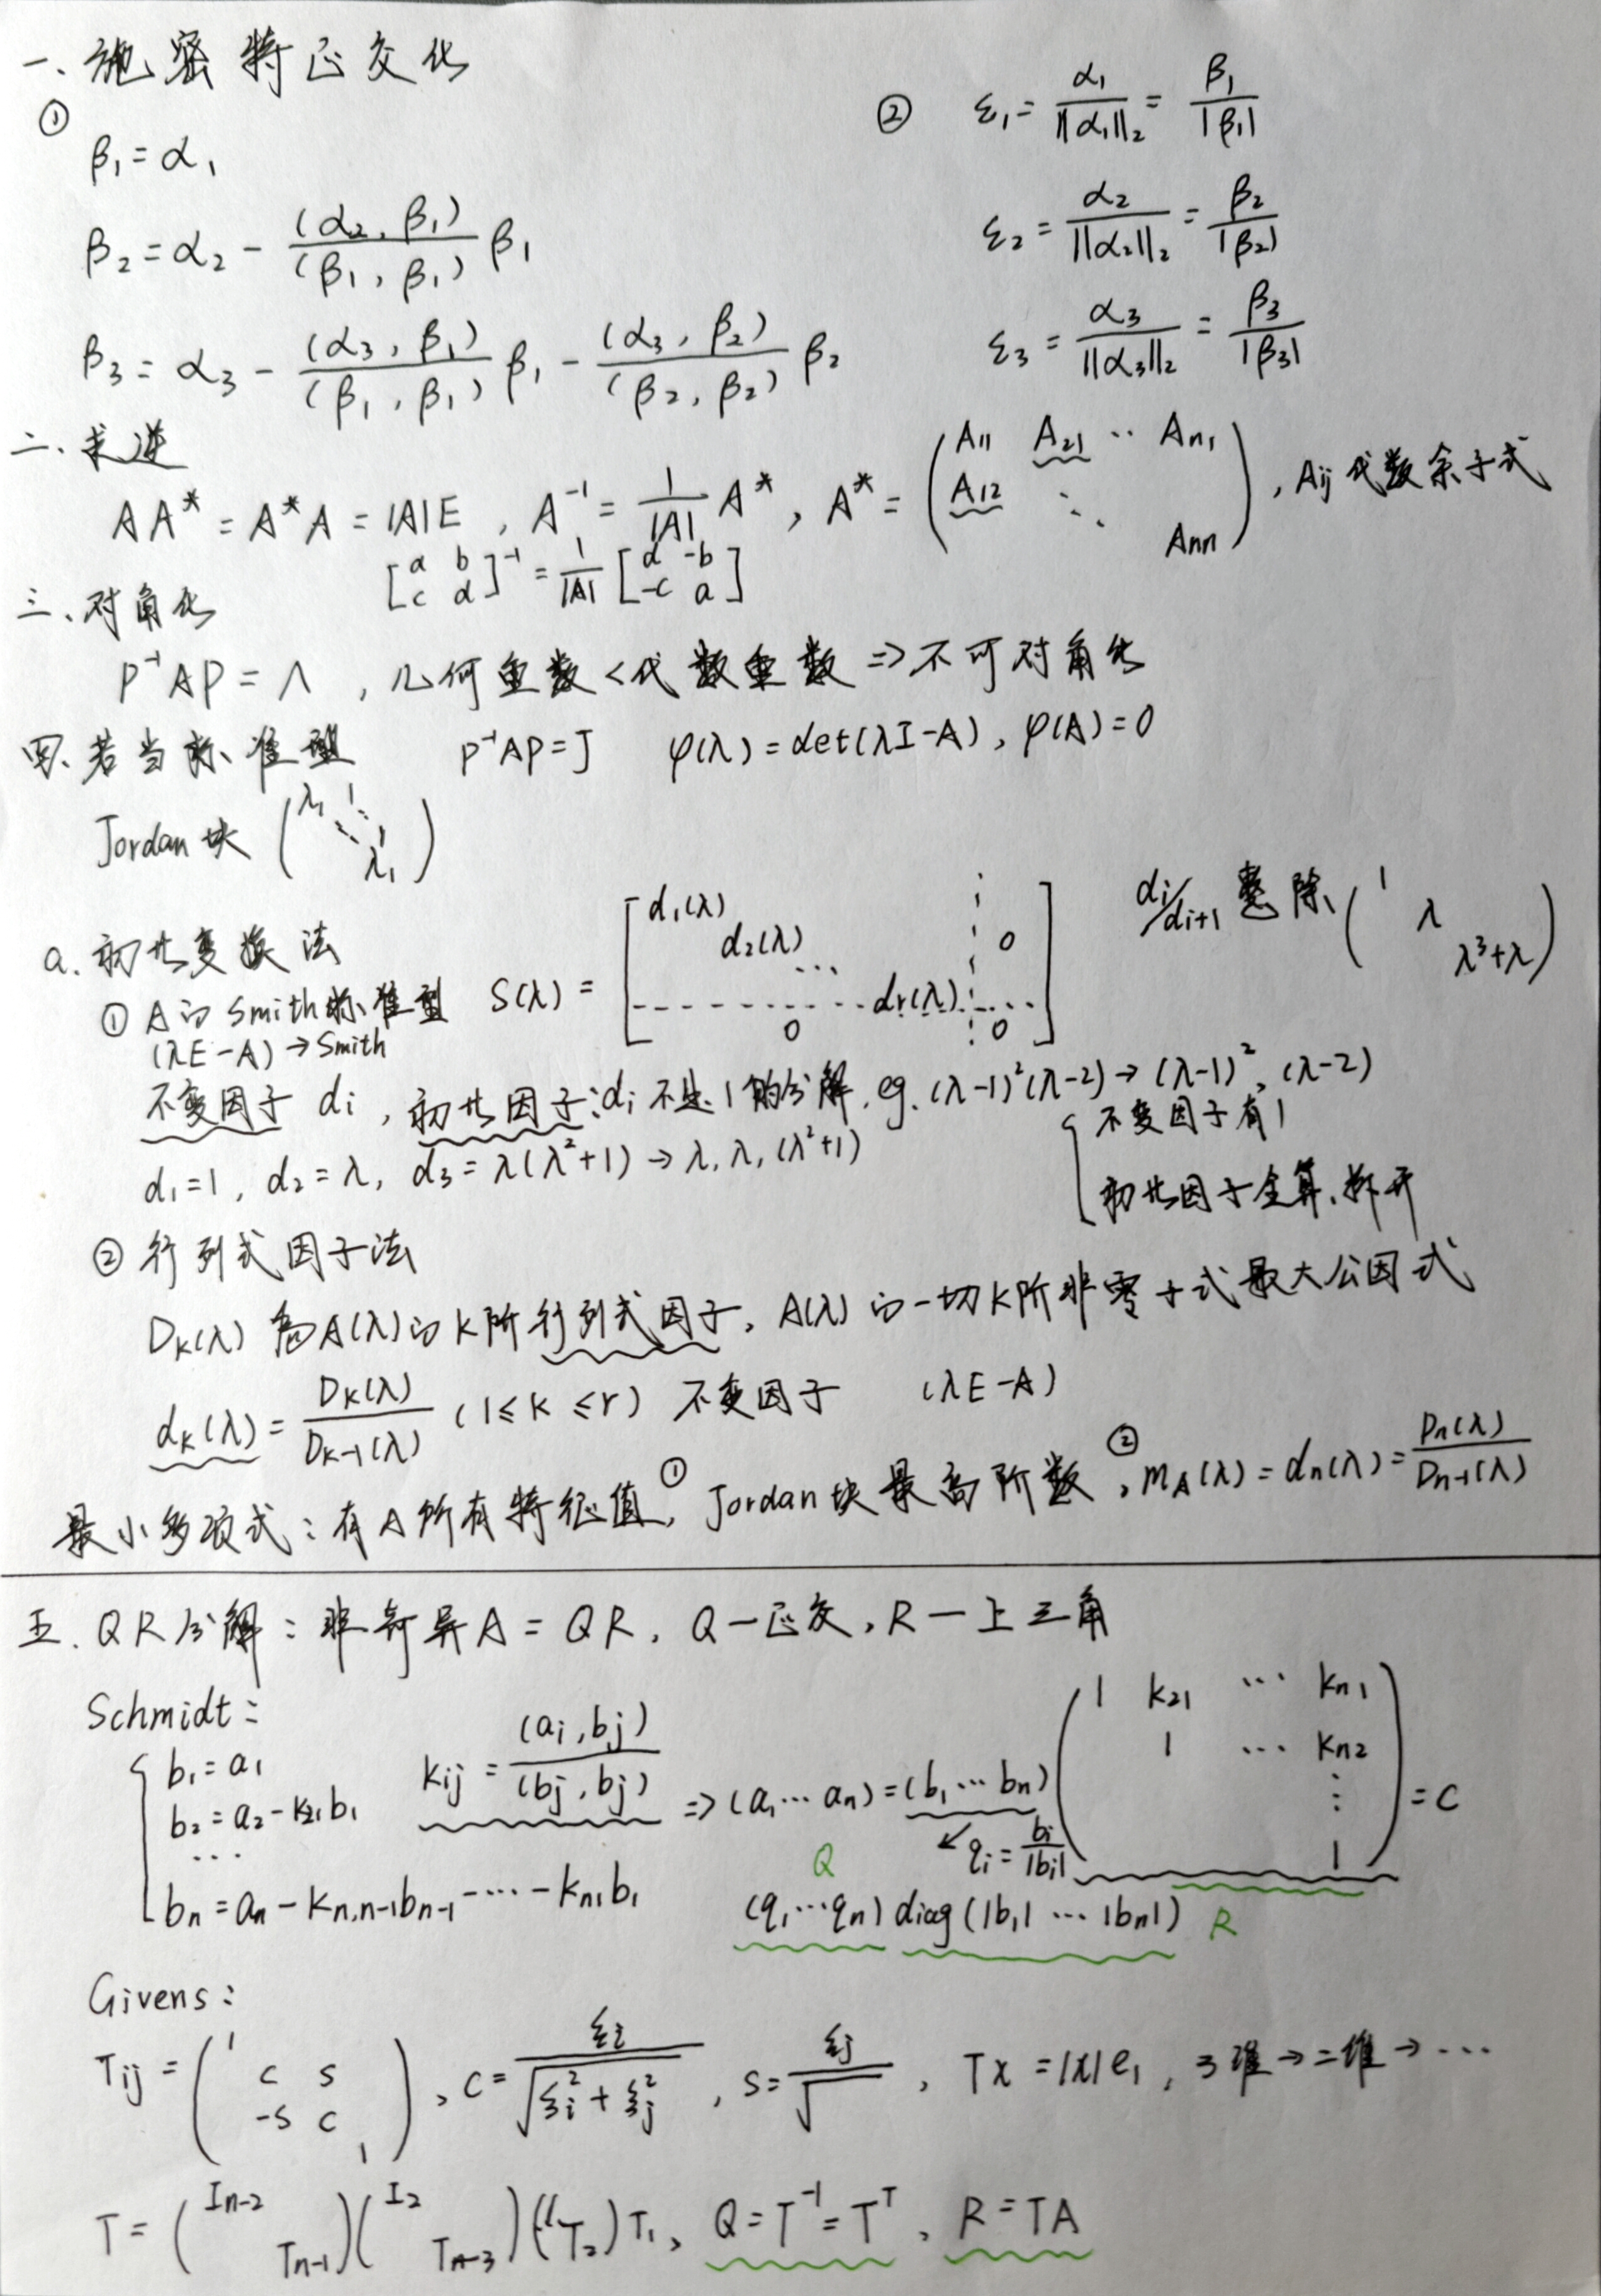 一、施密特正交化
①
β₁ = α₁
β₂ = α₂ - (α₂, β₁)/(β₁, β₁) β₁
β₃ = α₃ - (α₃, β₁)/(β₁, β₁) β₁ - (α₃, β₂)/(β₂, β₂) β₂
② ε₁ = α₁/||α₁||₂ = β₁/|β₁|
ε₂ = α₂/||α₂||₂ = β₂/|β₂|
ε₃ = α₃/||α₃||₂ = β₃/|β₃|
二、求逆
AA* = A*A = |A|E , A⁻¹ = 1/|A| A*, A* = (A₁₁ A₂₁ ·· Aₙ₁ A₁₂ ⋱ Aₙₙ), Aij 代数余子式
[a b c d]⁻¹ = 1/|A| [d -b -c a]
三、对角化
P⁻¹AP = Λ , 几何重数 < 代数重数 => 不可对角化
四、若当标准型 P⁻¹AP = J φ(λ) = det(λI-A), φ(A) = 0
Jordan 块 (λ₁ 1 ⋱ 1 λ₁)
a. 初等变换法
① A的Smith标准型 S(λ) = [d₁(λ) d₂(λ) ··· dr(λ) 0 0 0]
di/di+1 整除 (1 λ λ³+λ)
(λE-A) → Smith
不变因子 di , 初等因子: di 不是1的分解. eg. (λ-1)²(λ-2) → (λ-1)², (λ-2)
d₁=1, d₂=λ, d₃=λ(λ²+1) → λ, λ, (λ²+1)
{不变因子有1
初等因子全算、拆开
② 行列式因子法
Dₖ(λ) 为A(λ)的K阶行列式因子, A(λ)的一切K阶非零子式最大公因式
dₖ(λ) = Dₖ(λ)/Dₖ₋₁(λ) (1≤k≤r) 不变因子 (λE-A)
最小多项式: 有A所有特征值①, Jordan块最高阶数②, mA(λ) = dₙ(λ) = Dₙ(λ)/Dₙ₋₁(λ)
五. QR分解: 非奇异A = QR, Q—正交, R—上三角
Schmidt:
b₁ = a₁
b₂ = a₂ - k₂₁b₁
···
bₙ = aₙ - kₙ,ₙ₋₁bₙ₋₁ - ···· - kₙ₁b₁
kij = (ai, bj)/(bj, bj) => (a₁ ··· aₙ) = (b₁ ··· bₙ) (1 k₂₁ ··· kₙ₁ 1 ··· kₙ₂ ⋮ 1) = C
↙ qi = bi/|bi|
Q
(q₁···qₙ) diag(|b₁| ··· |bₙ|) R
Givens:
Tij = (1 c s -s c 1), c = ξi/√(ξi² + ξj²), s = ξj/√ , Tx = |x|e₁, 3维→二维→···
T = (Iₙ₋₂ Tₙ₋₁)(I₂ Tₙ₋₃)(1 T₂)T₁, Q = T⁻¹ = Tᵀ, R = TA